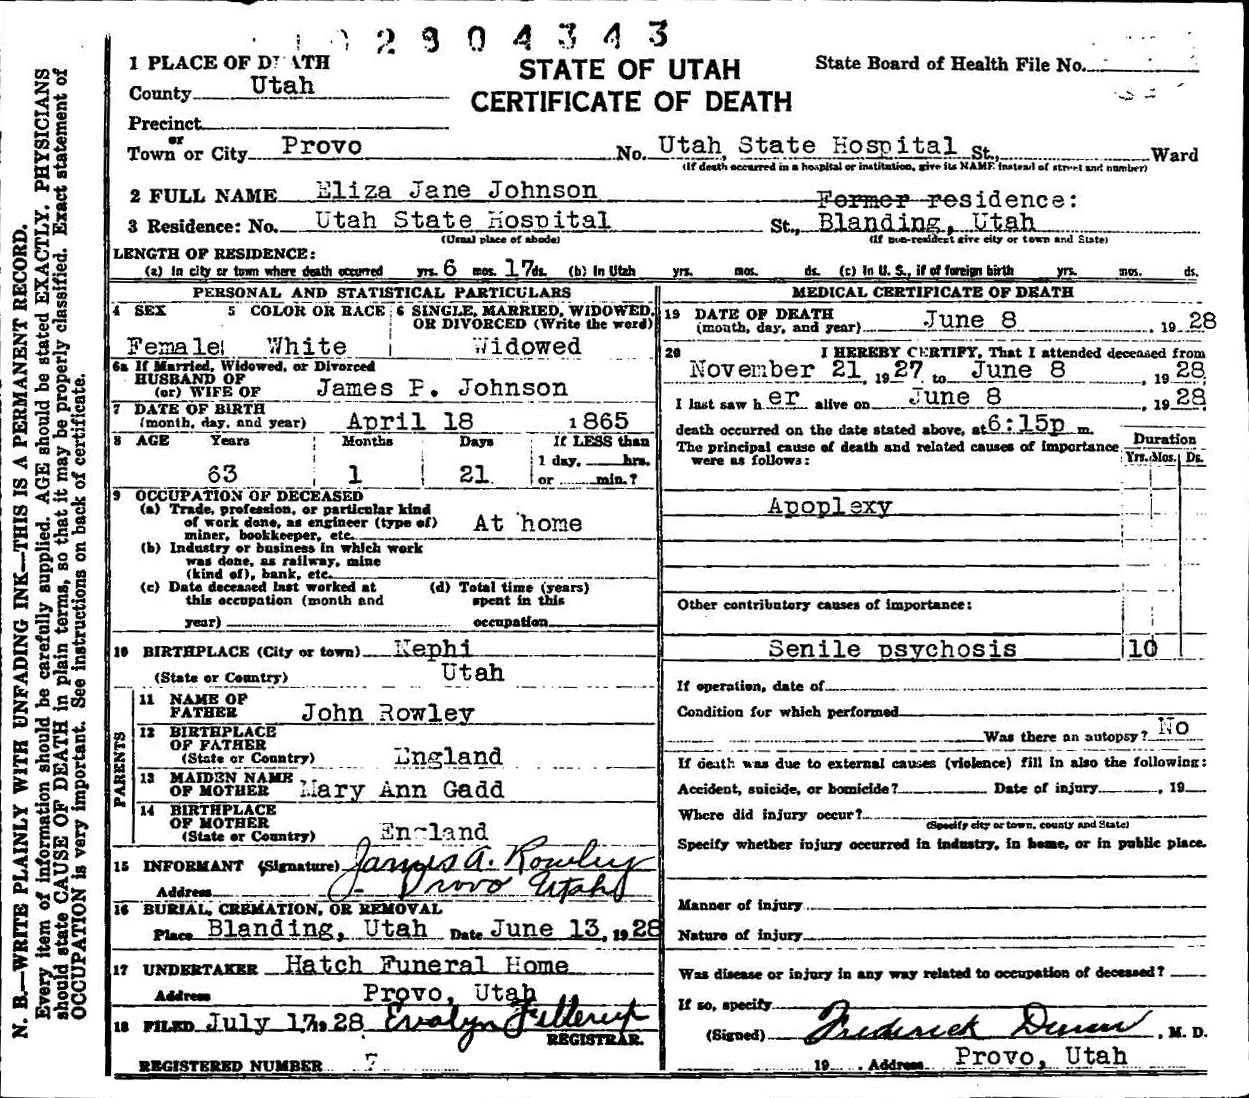 2904343
1 PLACE OF DEATH
STATE OF UTAH
CERTIFICATE OF DEATH
State Board of Health File No.
County Utah
Precinct
or
Town or City Provo No. Utah State Hospital St., Ward
(If death occurred in a hospital or institution, give its NAME instead of street and number)
2 FULL NAME Eliza Jane Johnson Former residence:
3 Residence: No. Utah State Hospital St., Blanding, Utah
(Usual place of abode) (If non-resident give city or town and State)
LENGTH OF RESIDENCE:
(a) In city or town where death occurred yrs. 6 mos. 17 ds. (b) In Utah yrs. mos. ds. (c) In U. S., if of foreign birth yrs. mos. ds.
PERSONAL AND STATISTICAL PARTICULARS
4 SEX 5 COLOR OR RACE 6 SINGLE, MARRIED, WIDOWED,
OR DIVORCED (Write the word)
Female White Widowed
6a If Married, Widowed, or Divorced
HUSBAND OF
(or) WIFE OF James P. Johnson
7 DATE OF BIRTH
(month, day, and year) April 18 1865
8 AGE Years Months Days If LESS than
1 day, hrs.
63 1 21 or min.?
9 OCCUPATION OF DECEASED
(a) Trade, profession, or particular kind
of work done, as engineer (type of)
miner, bookkeeper, etc. At home
(b) Industry or business in which work
was done, as railway, mine
(kind of), bank, etc.
(c) Date deceased last worked at
this occupation (month and
year)
(d) Total time (years)
spent in this
occupation
10 BIRTHPLACE (City or town) Nephi
(State or Country) Utah
PARENTS
11 NAME OF
FATHER John Rowley
12 BIRTHPLACE
OF FATHER
(State or Country) England
13 MAIDEN NAME
OF MOTHER Mary Ann Gadd
14 BIRTHPLACE
OF MOTHER
(State or Country) England
15 INFORMANT (Signature) James A. Rowley
Address Provo Utah
16 BURIAL, CREMATION, OR REMOVAL
Place Blanding, Utah Date June 13, 1928
17 UNDERTAKER Hatch Funeral Home
Address Provo, Utah
18 FILED July 17, 1928 Evalyn Fillerup
REGISTRAR.
REGISTERED NUMBER 7
MEDICAL CERTIFICATE OF DEATH
19 DATE OF DEATH
(month, day, and year) June 8, 1928
20 I HEREBY CERTIFY, That I attended deceased from
November 21, 1927 to June 8, 1928
I last saw her alive on June 8, 1928
death occurred on the date stated above, at 6:15p m.
The principal cause of death and related causes of importance
were as follows:
Duration
Yrs. Mos. Ds.
Apoplexy
Other contributory causes of importance:
Senile psychosis 10
If operation, date of
Condition for which performed
Was there an autopsy? No
If death was due to external causes (violence) fill in also the following:
Accident, suicide, or homicide? Date of injury , 19
Where did injury occur?
(Specify city or town, county and State)
Specify whether injury occurred in industry, in home, or in public place.
Manner of injury
Nature of injury
Was disease or injury in any way related to occupation of deceased?
If so, specify
(Signed) Frederick Dunn, M. D.
19 . Address Provo, Utah
N. B.—WRITE PLAINLY WITH UNFADING INK—THIS IS A PERMANENT RECORD.
Every item of information should be carefully supplied. AGE should be stated EXACTLY. PHYSICIANS
should state CAUSE OF DEATH in plain terms, so that it may be properly classified. Exact statement of
OCCUPATION is very important. See instructions on back of certificate.